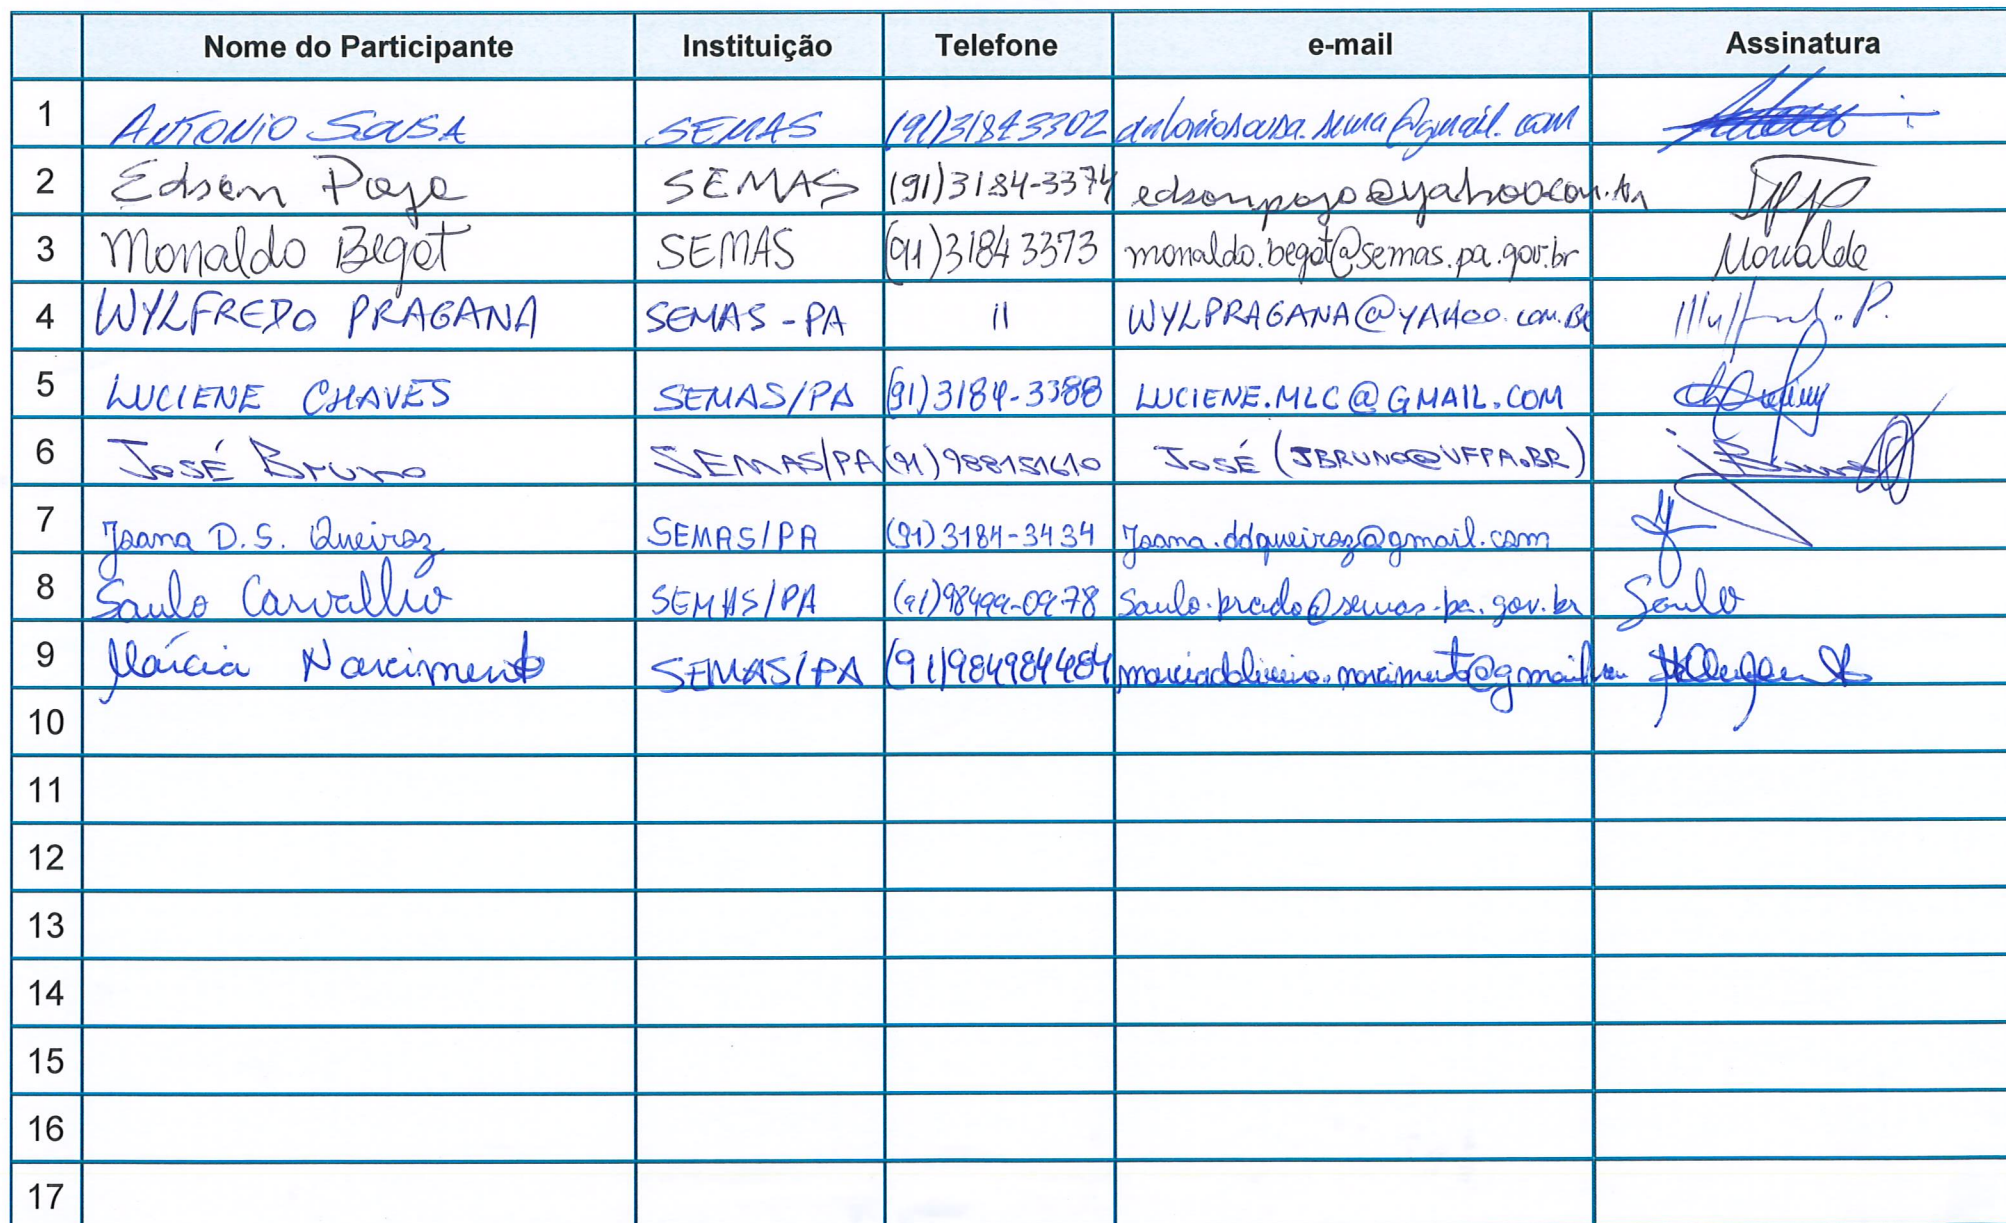 Nome do Participante Instituição Telefone e-mail Assinatura
1 ANTONIO SOUSA SEMAS (91)31843302 antoniosousa.sema@gmail.com
2 Edson Pojo SEMAS (91)3184-3374 edsonpojo@yahoo.com.br
3 Monaldo Begot SEMAS (91)3184 3373 monaldo.begot@semas.pa.gov.br Monaldo
4 WYLFREDO PRAGANA SEMAS-PA 11 WYLPRAGANA@YAHOO.COM.BR
5 LUCIENE CHAVES SEMAS/PA (91)3184-3388 LUCIENE.MLC@GMAIL.COM
6 JOSÉ BRUNO SEMAS/PA (91)988151610 JOSÉ (JBRUNO@UFPA.BR)
7 Joana D.S. Queiroz SEMAS/PA (91)3184-3434 Joana.ddqueiroz@gmail.com
8 Saulo Carvalho SEMAS/PA Saulo.prado@semas.pa.gov.br Saulo
9 Márcia Nascimento SEMAS/PA (91)984984484
10
11
12
13
14
15
16
17